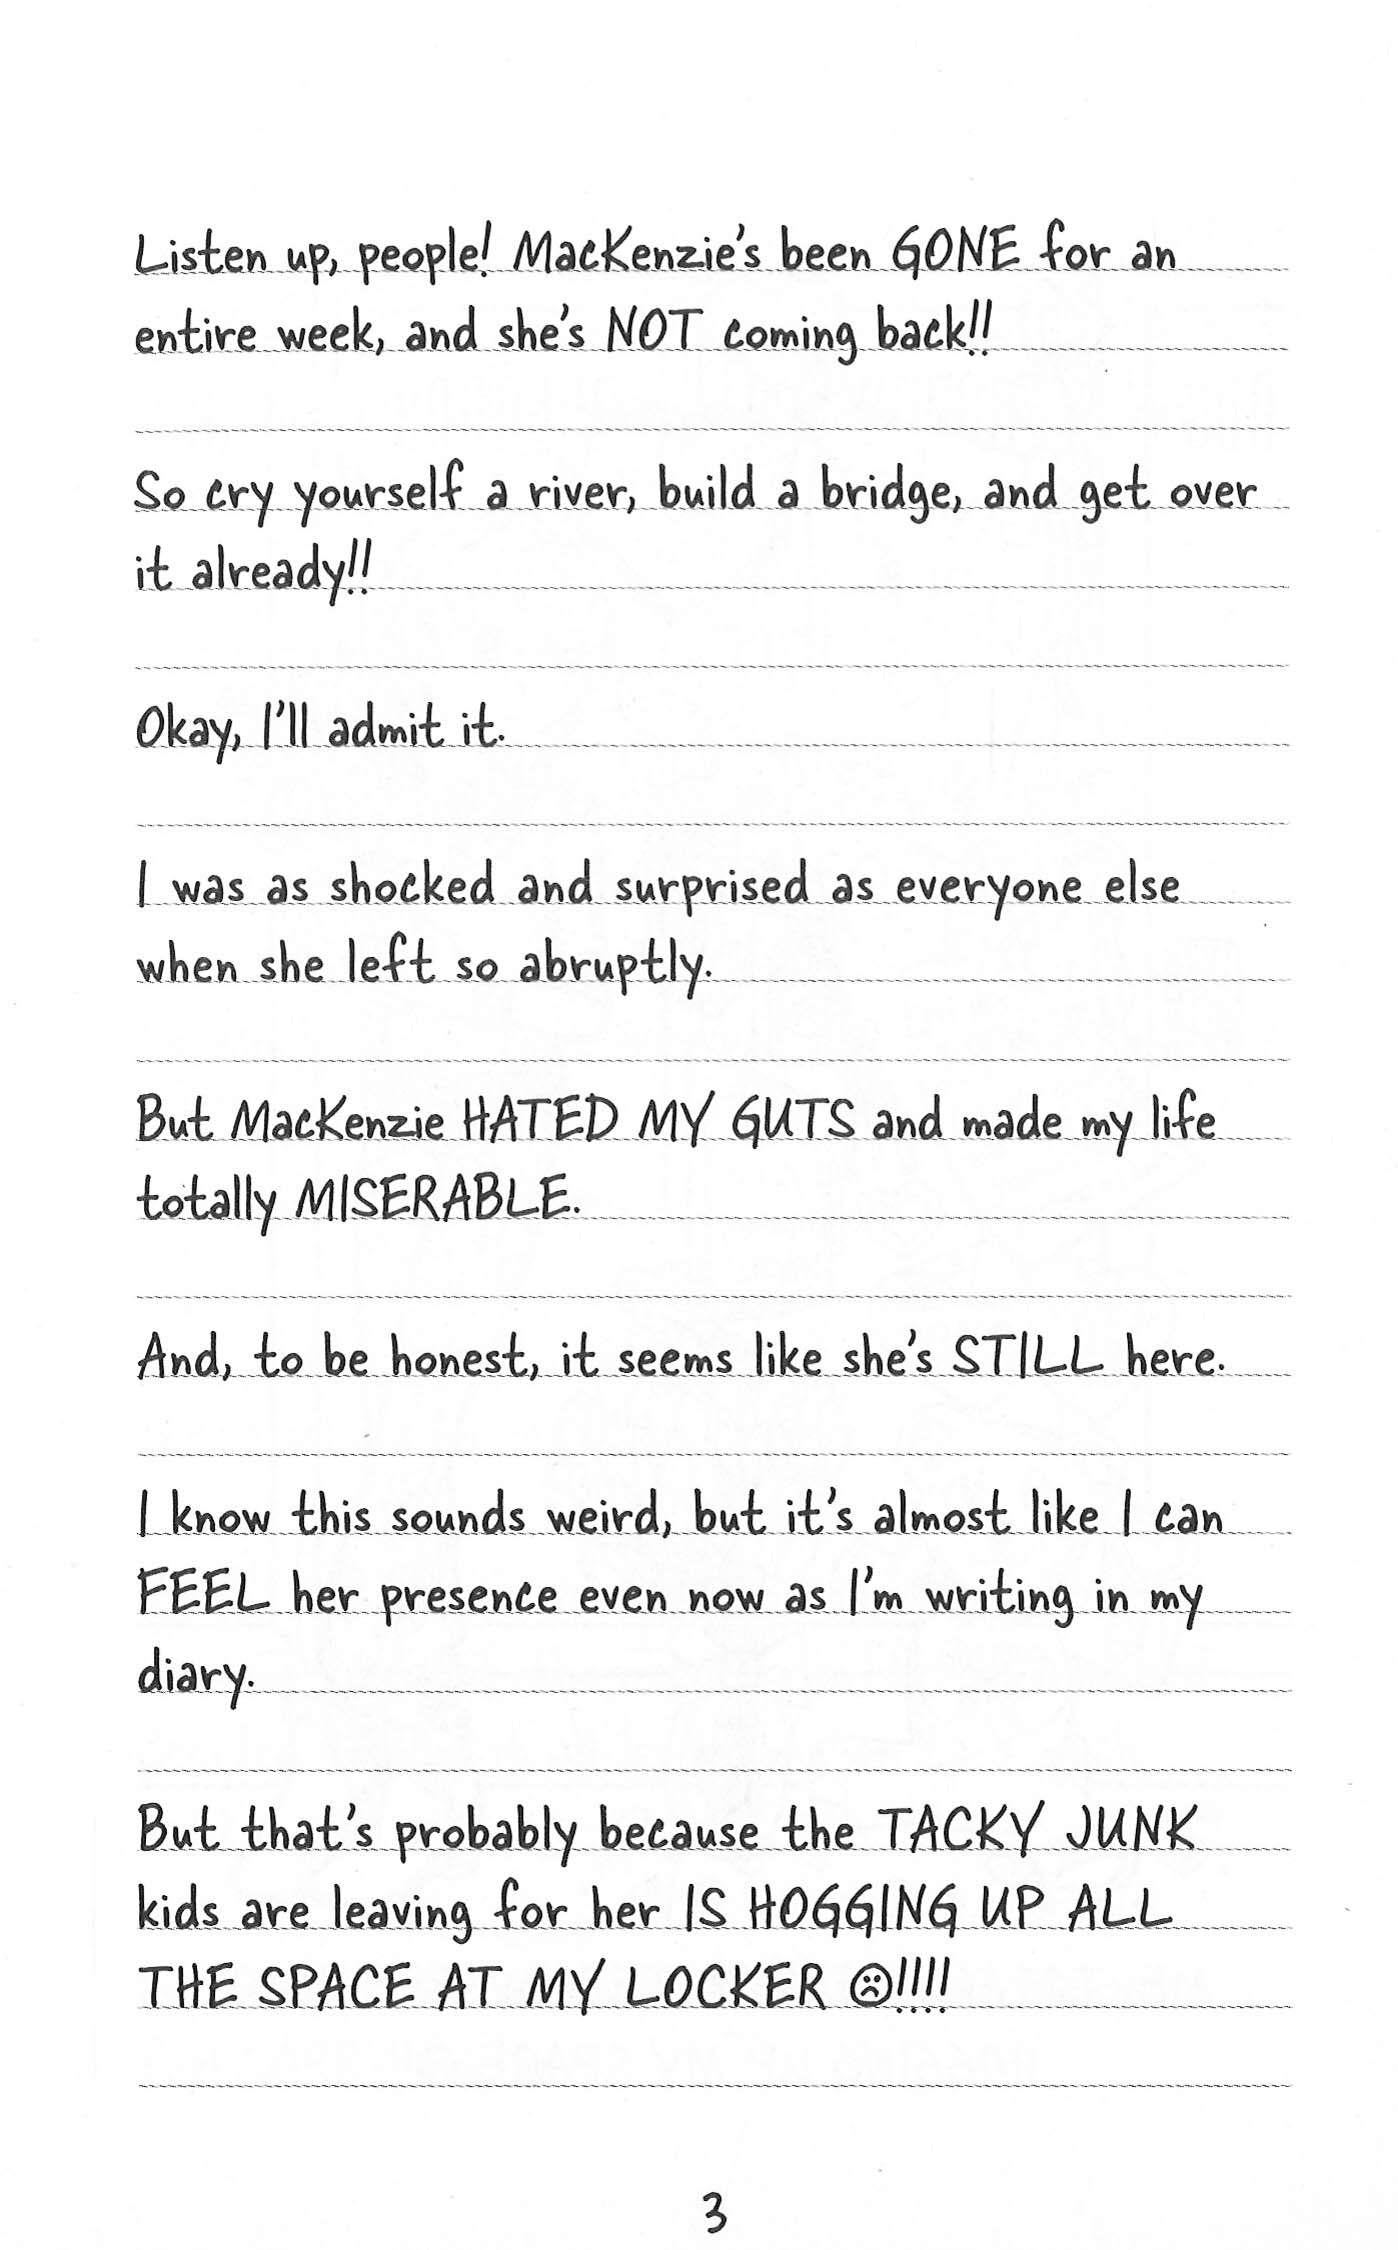 Listen up, people! MacKenzie's been GONE for an
entire week, and she's NOT coming back!!
So cry yourself a river, build a bridge, and get over
it already!!
Okay, I'll admit it.
I was as shocked and surprised as everyone else
when she left so abruptly.
But MacKenzie HATED MY GUTS and made my life
totally MISERABLE.
And, to be honest, it seems like she's STILL here.
I know this sounds weird, but it's almost like I can
FEEL her presence even now as I'm writing in my
diary.
But that's probably because the TACKY JUNK
kids are leaving for her IS HOGGING UP ALL
THE SPACE AT MY LOCKER ☹!!!!
3